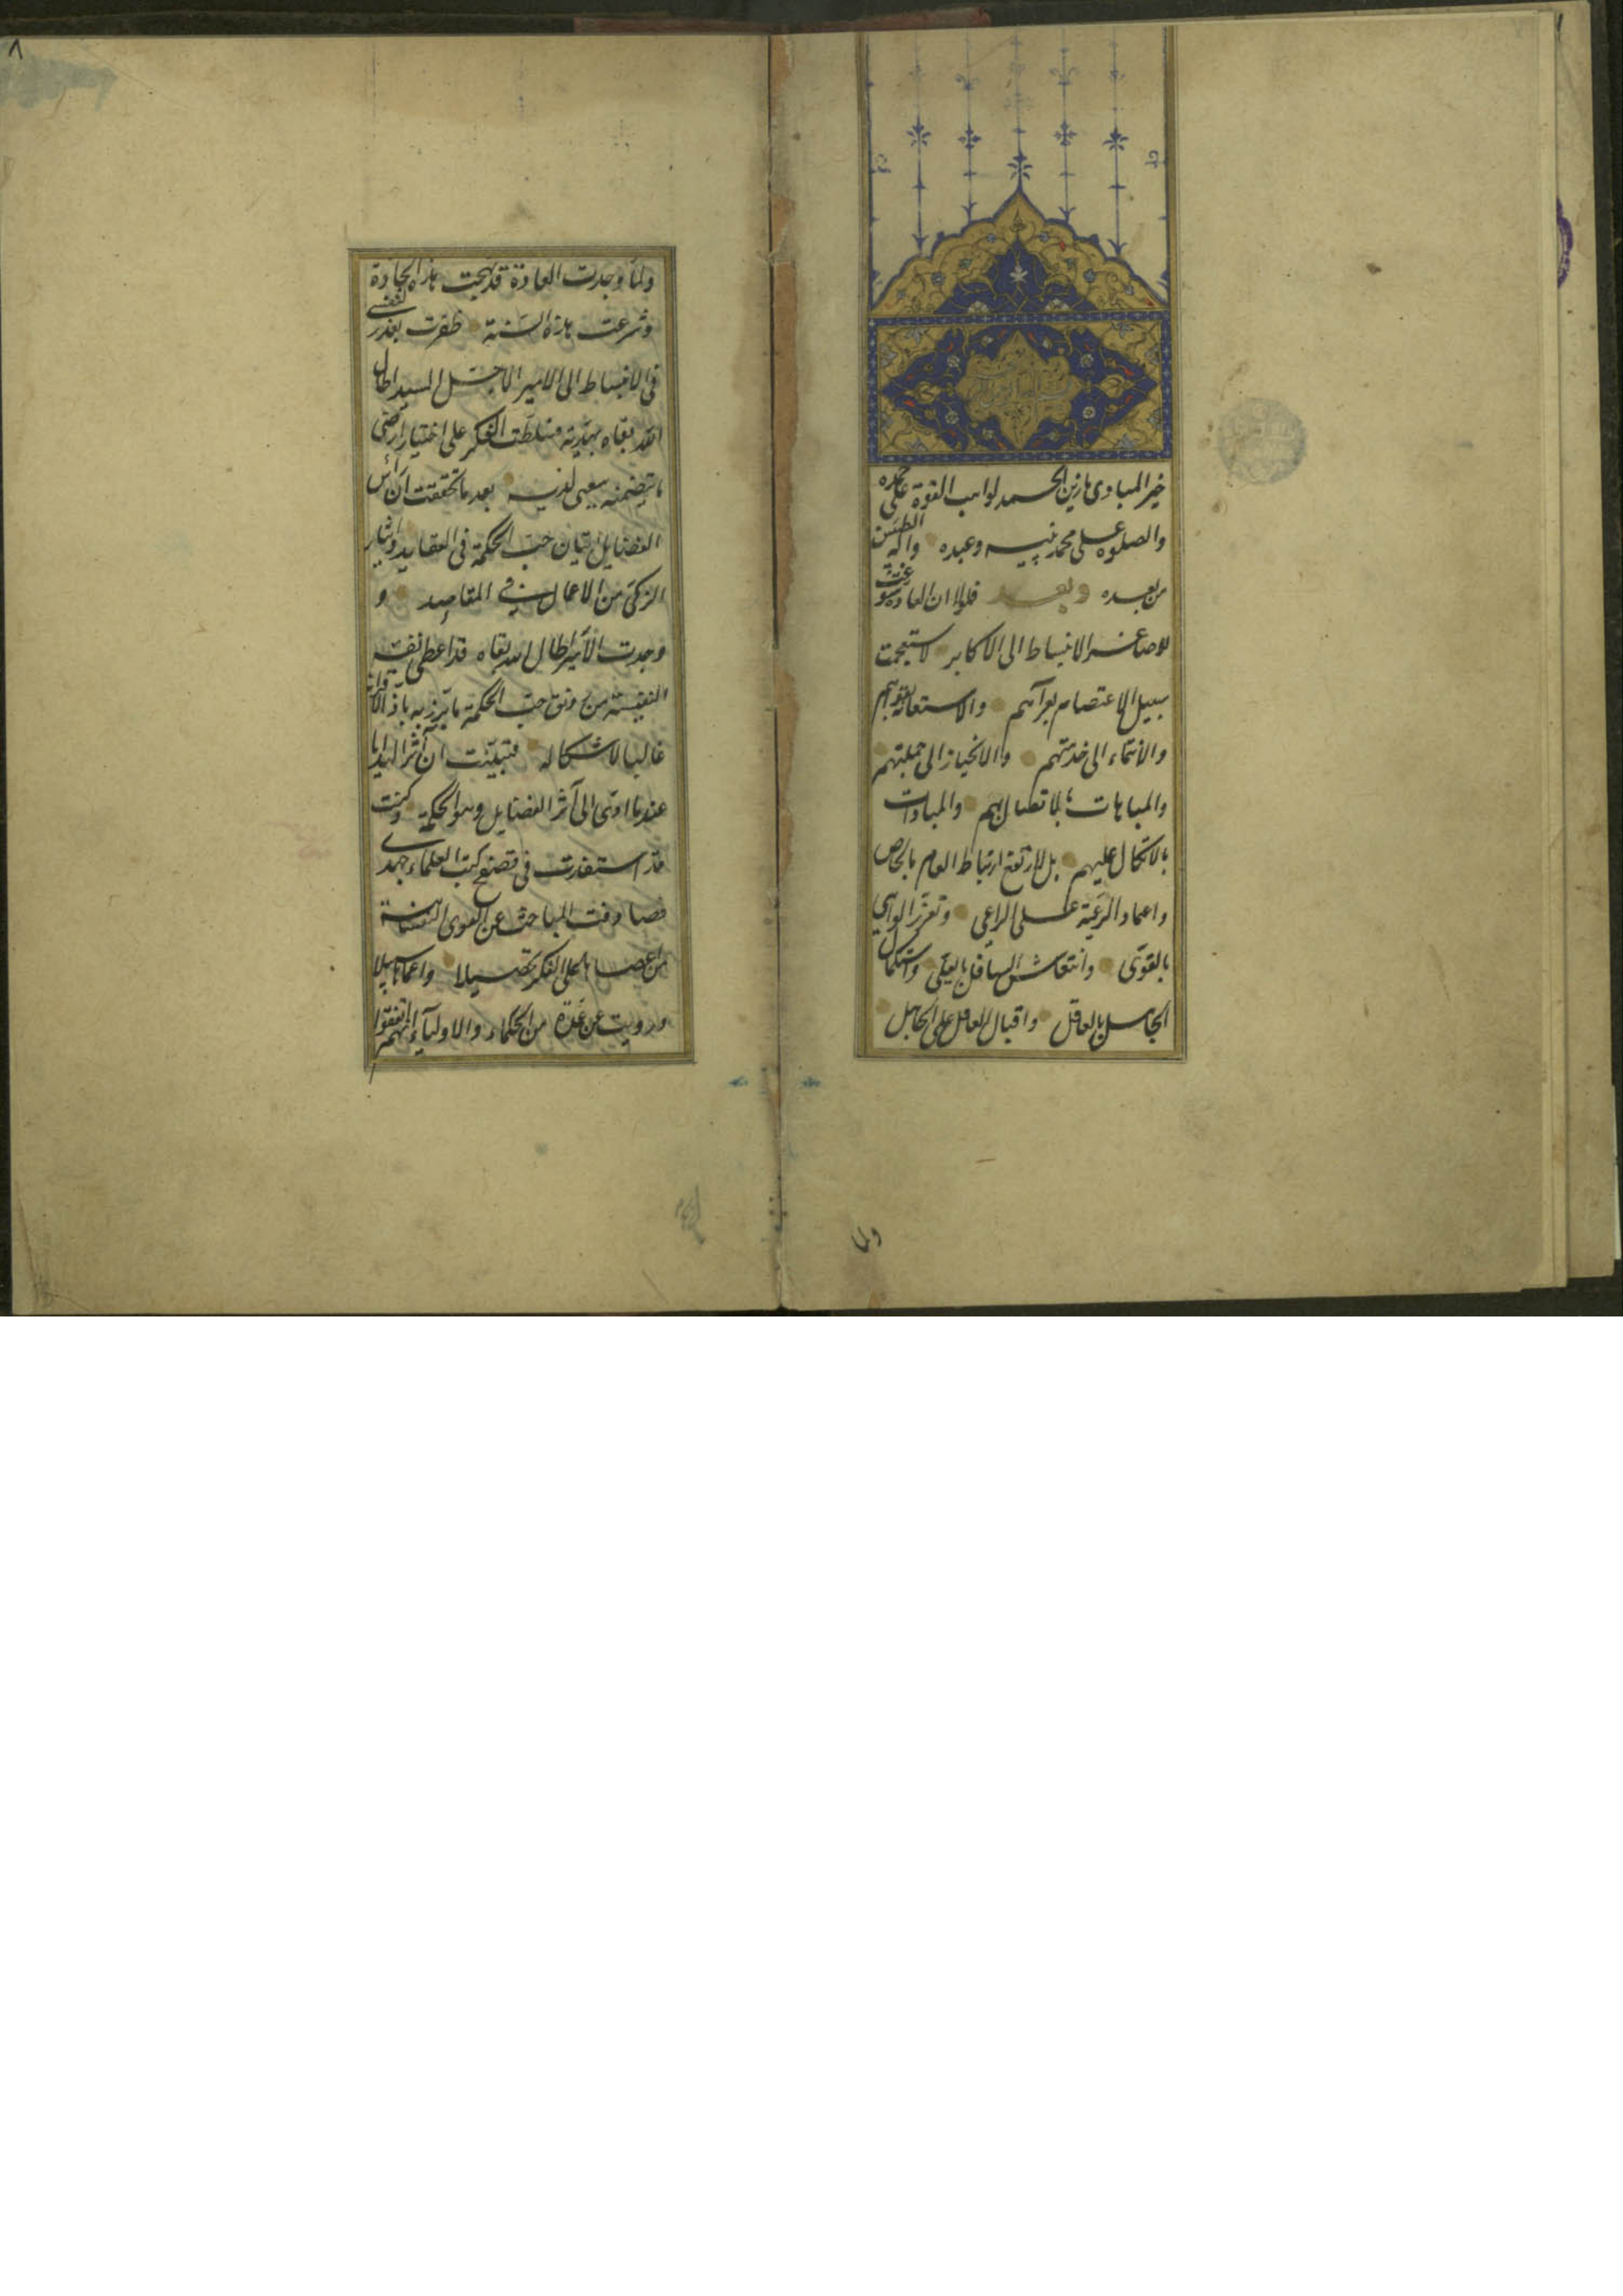 خير المبادى ما زين بالحمد لواهب القوة على حمده
والصلوة على محمد نبيه وعبده وآله الطيبين
من بعده وبعد فلولا ان العادة سوغت
للاصاغر الانبساط الى الاكابر لاستعجمت
سبيل الاعتصام بعراهم والاستعانة بقوتهم
والانتماء الى خدمتهم والانحياز الى جملتهم
والمباهات بالاتصال بهم والمبادات
بالاتكال عليهم بل لارتفع ارتباط العام بالخاص
واعتماد الرعية على الراعى وتعزز الواهى
بالقوى وانتعاش السافل بالعلى واستكمال
الجاهل بالعاقل واقبال العاقل على الجاهل
ولما
٨
ولما وجدت العادة قد نهجت هذه الجادة
وشرعت هذه السنة ظفرت بعذر لنفسى
فى الانبساط الى الامير الاجل السيد اطال
الله بقاه بهدية فسلطت الفكر على اختيار ارضى
ما يتضمنه سعيى لديه بعد ما تحققت ان راس
الفضايل اثنان حب الحكمة فى العقايد وايثار
الزكى من الاعمال فى المقاصد و
وجدت الامير اطال الله بقاه قد اعطى نفسه
النفيسة من رونق حب الحكمة ما برز به باذ الاقرانه
غالبا لاشكاله فتبينت ان آثر الهدايا
عنده ما ادى الى آثر الفضايل وهو الحكمة وكنت
قد استفدت فى تصفح كتب العلماء جهدى
فصادفت المباحث عن القوى النفسانية
من اعصاها على الفكر تحصيلا واعماها سبيلا
ورويت عن عدة من الحكماء والاولياء انهم اتفقوا